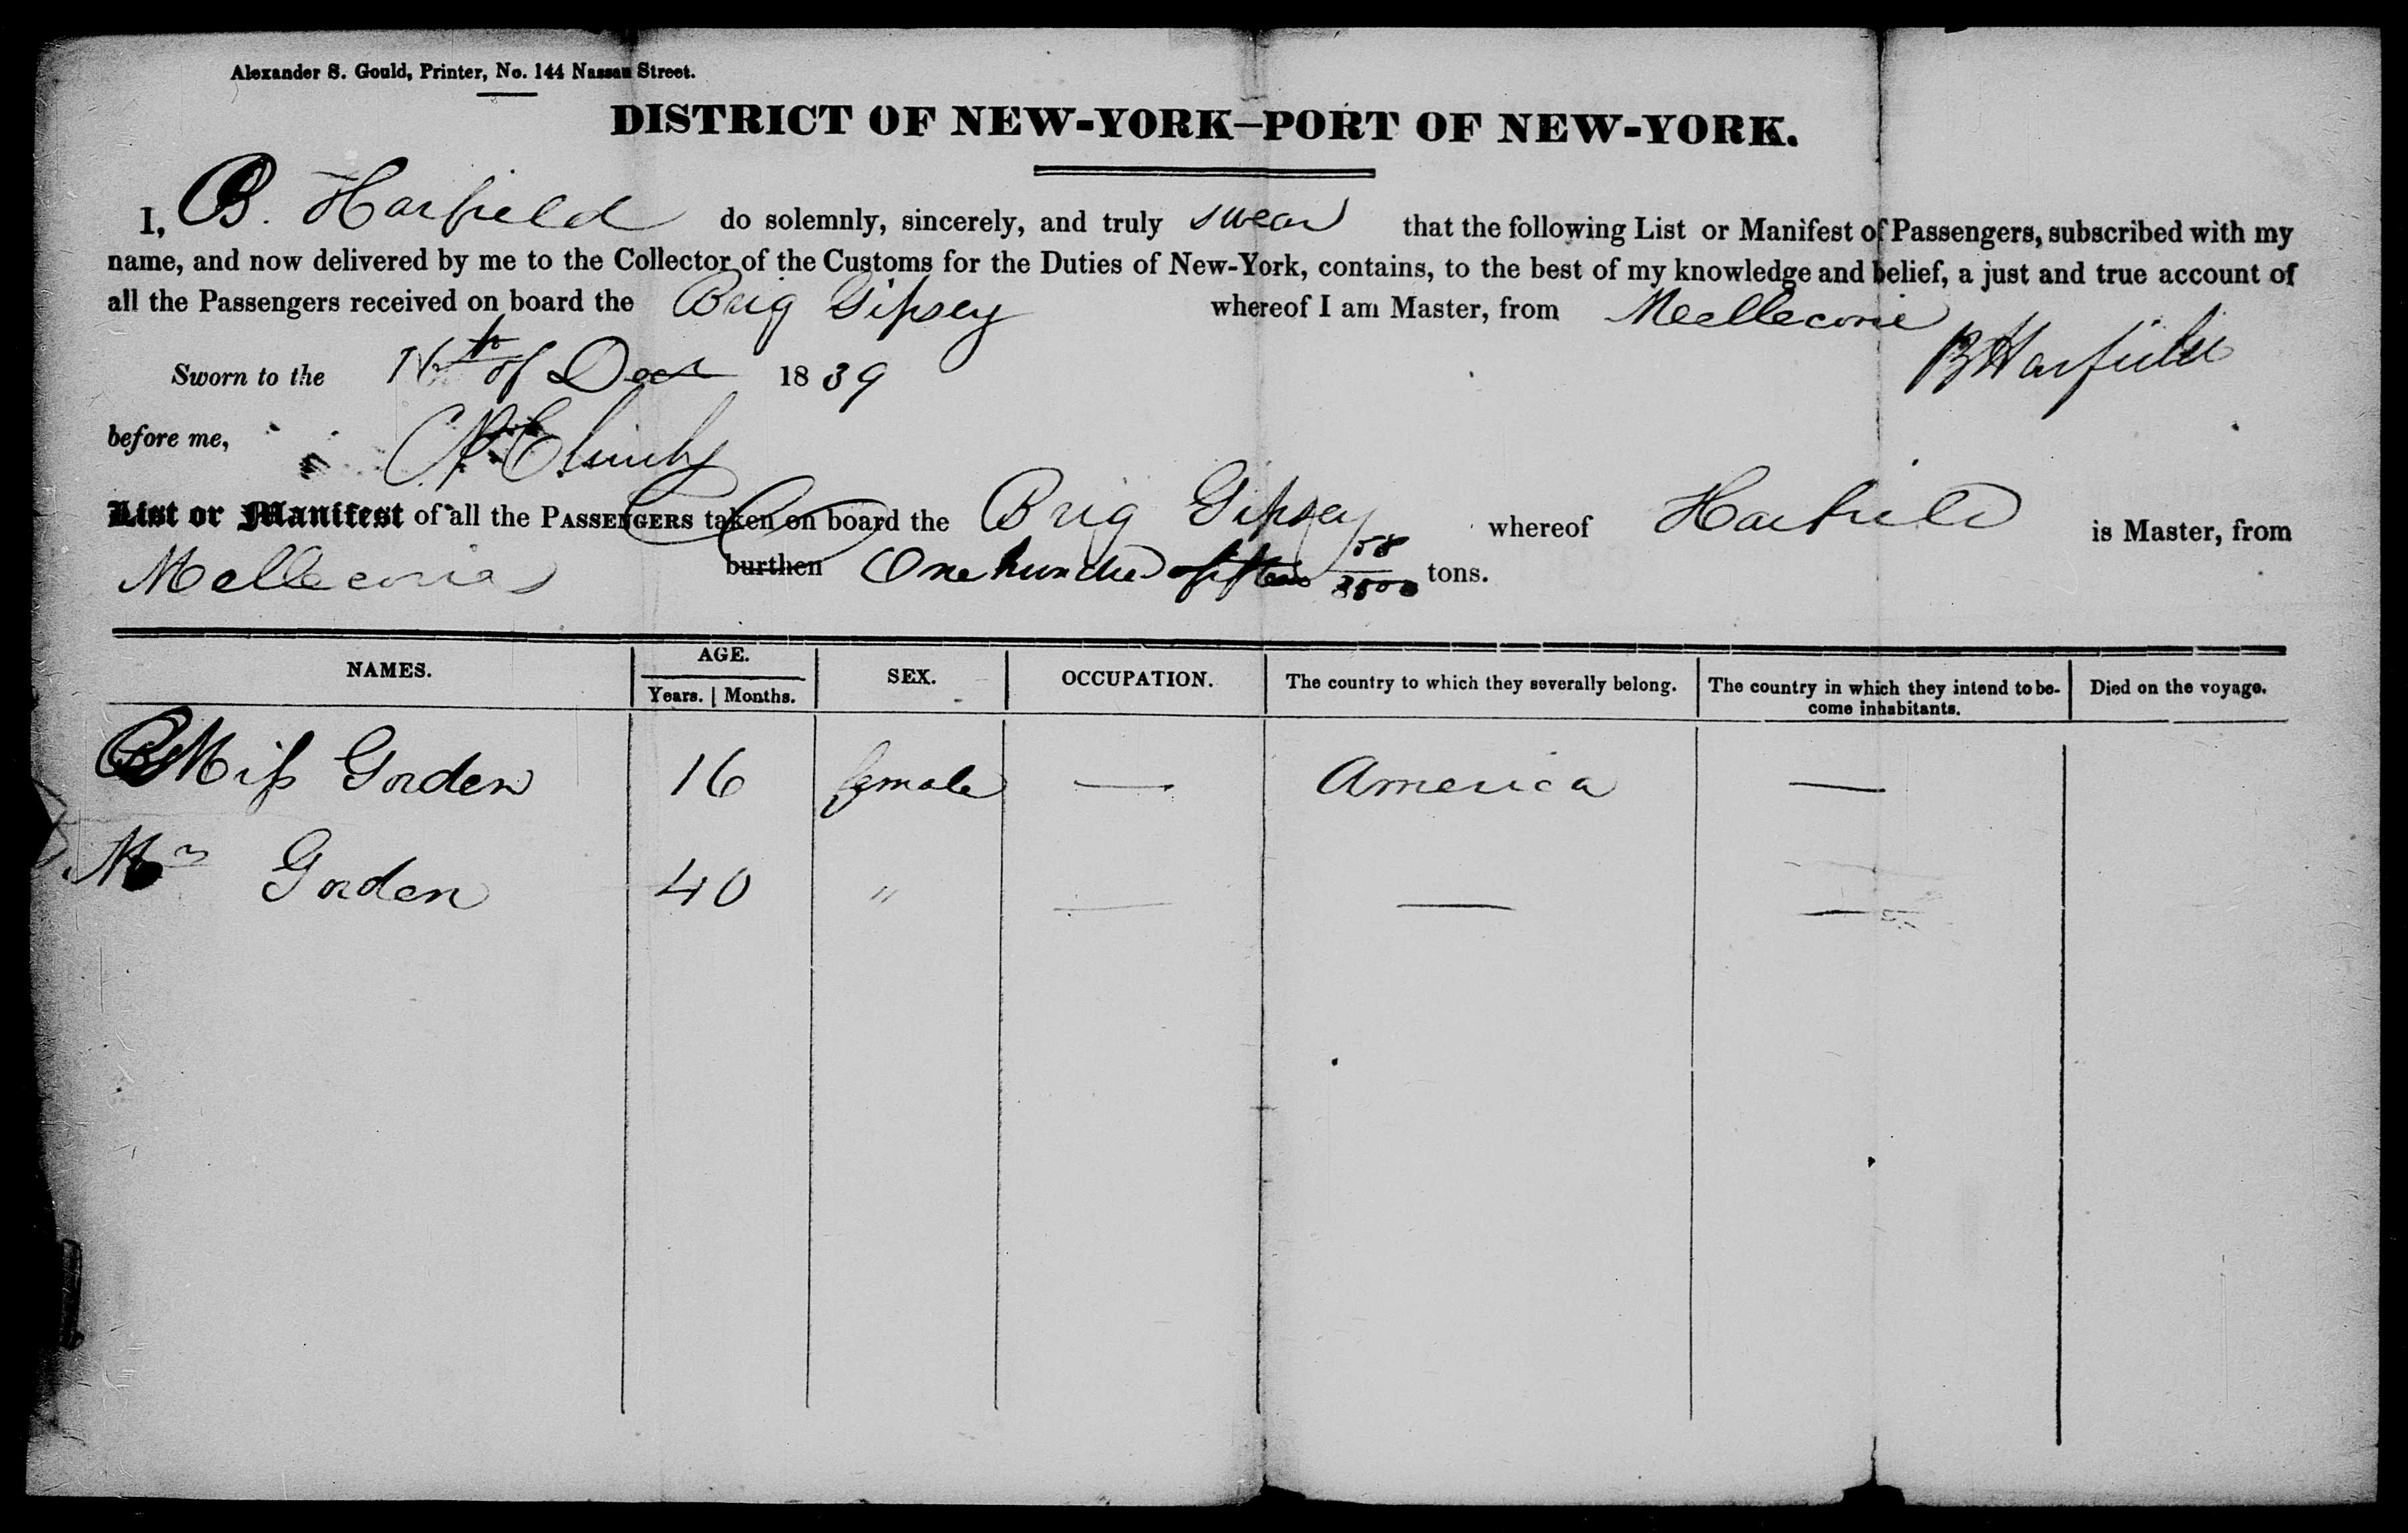 Alexander S. Gould, Printer, No. 144 Nassau Street.
DISTRICT OF NEW-YORK—PORT OF NEW-YORK.
I, B. Harfield do solemnly, sincerely, and truly swear that the following List or Manifest of Passengers, subscribed with my
name, and now delivered by me to the Collector of the Customs for the Duties of New-York, contains, to the best of my knowledge and belief, a just and true account of
all the Passengers received on board the Brig Gipsey whereof I am Master, from Mellecorie
B Harfield
Sworn to the 16th of Decr 1839
before me,
List or Manifest of all the PASSENGERS taken on board the Brig Gipsey whereof Harfield is Master, from
Mellecoria burthen One hundred fifteen 58 tons.
NAMES. AGE. SEX. OCCUPATION. The country to which they severally belong. The country in which they intend to be- Died on the voyage.
Years. | Months. come inhabitants.
Miss Gorden 16 female — America —
Mrs Gorden 40 " — — —